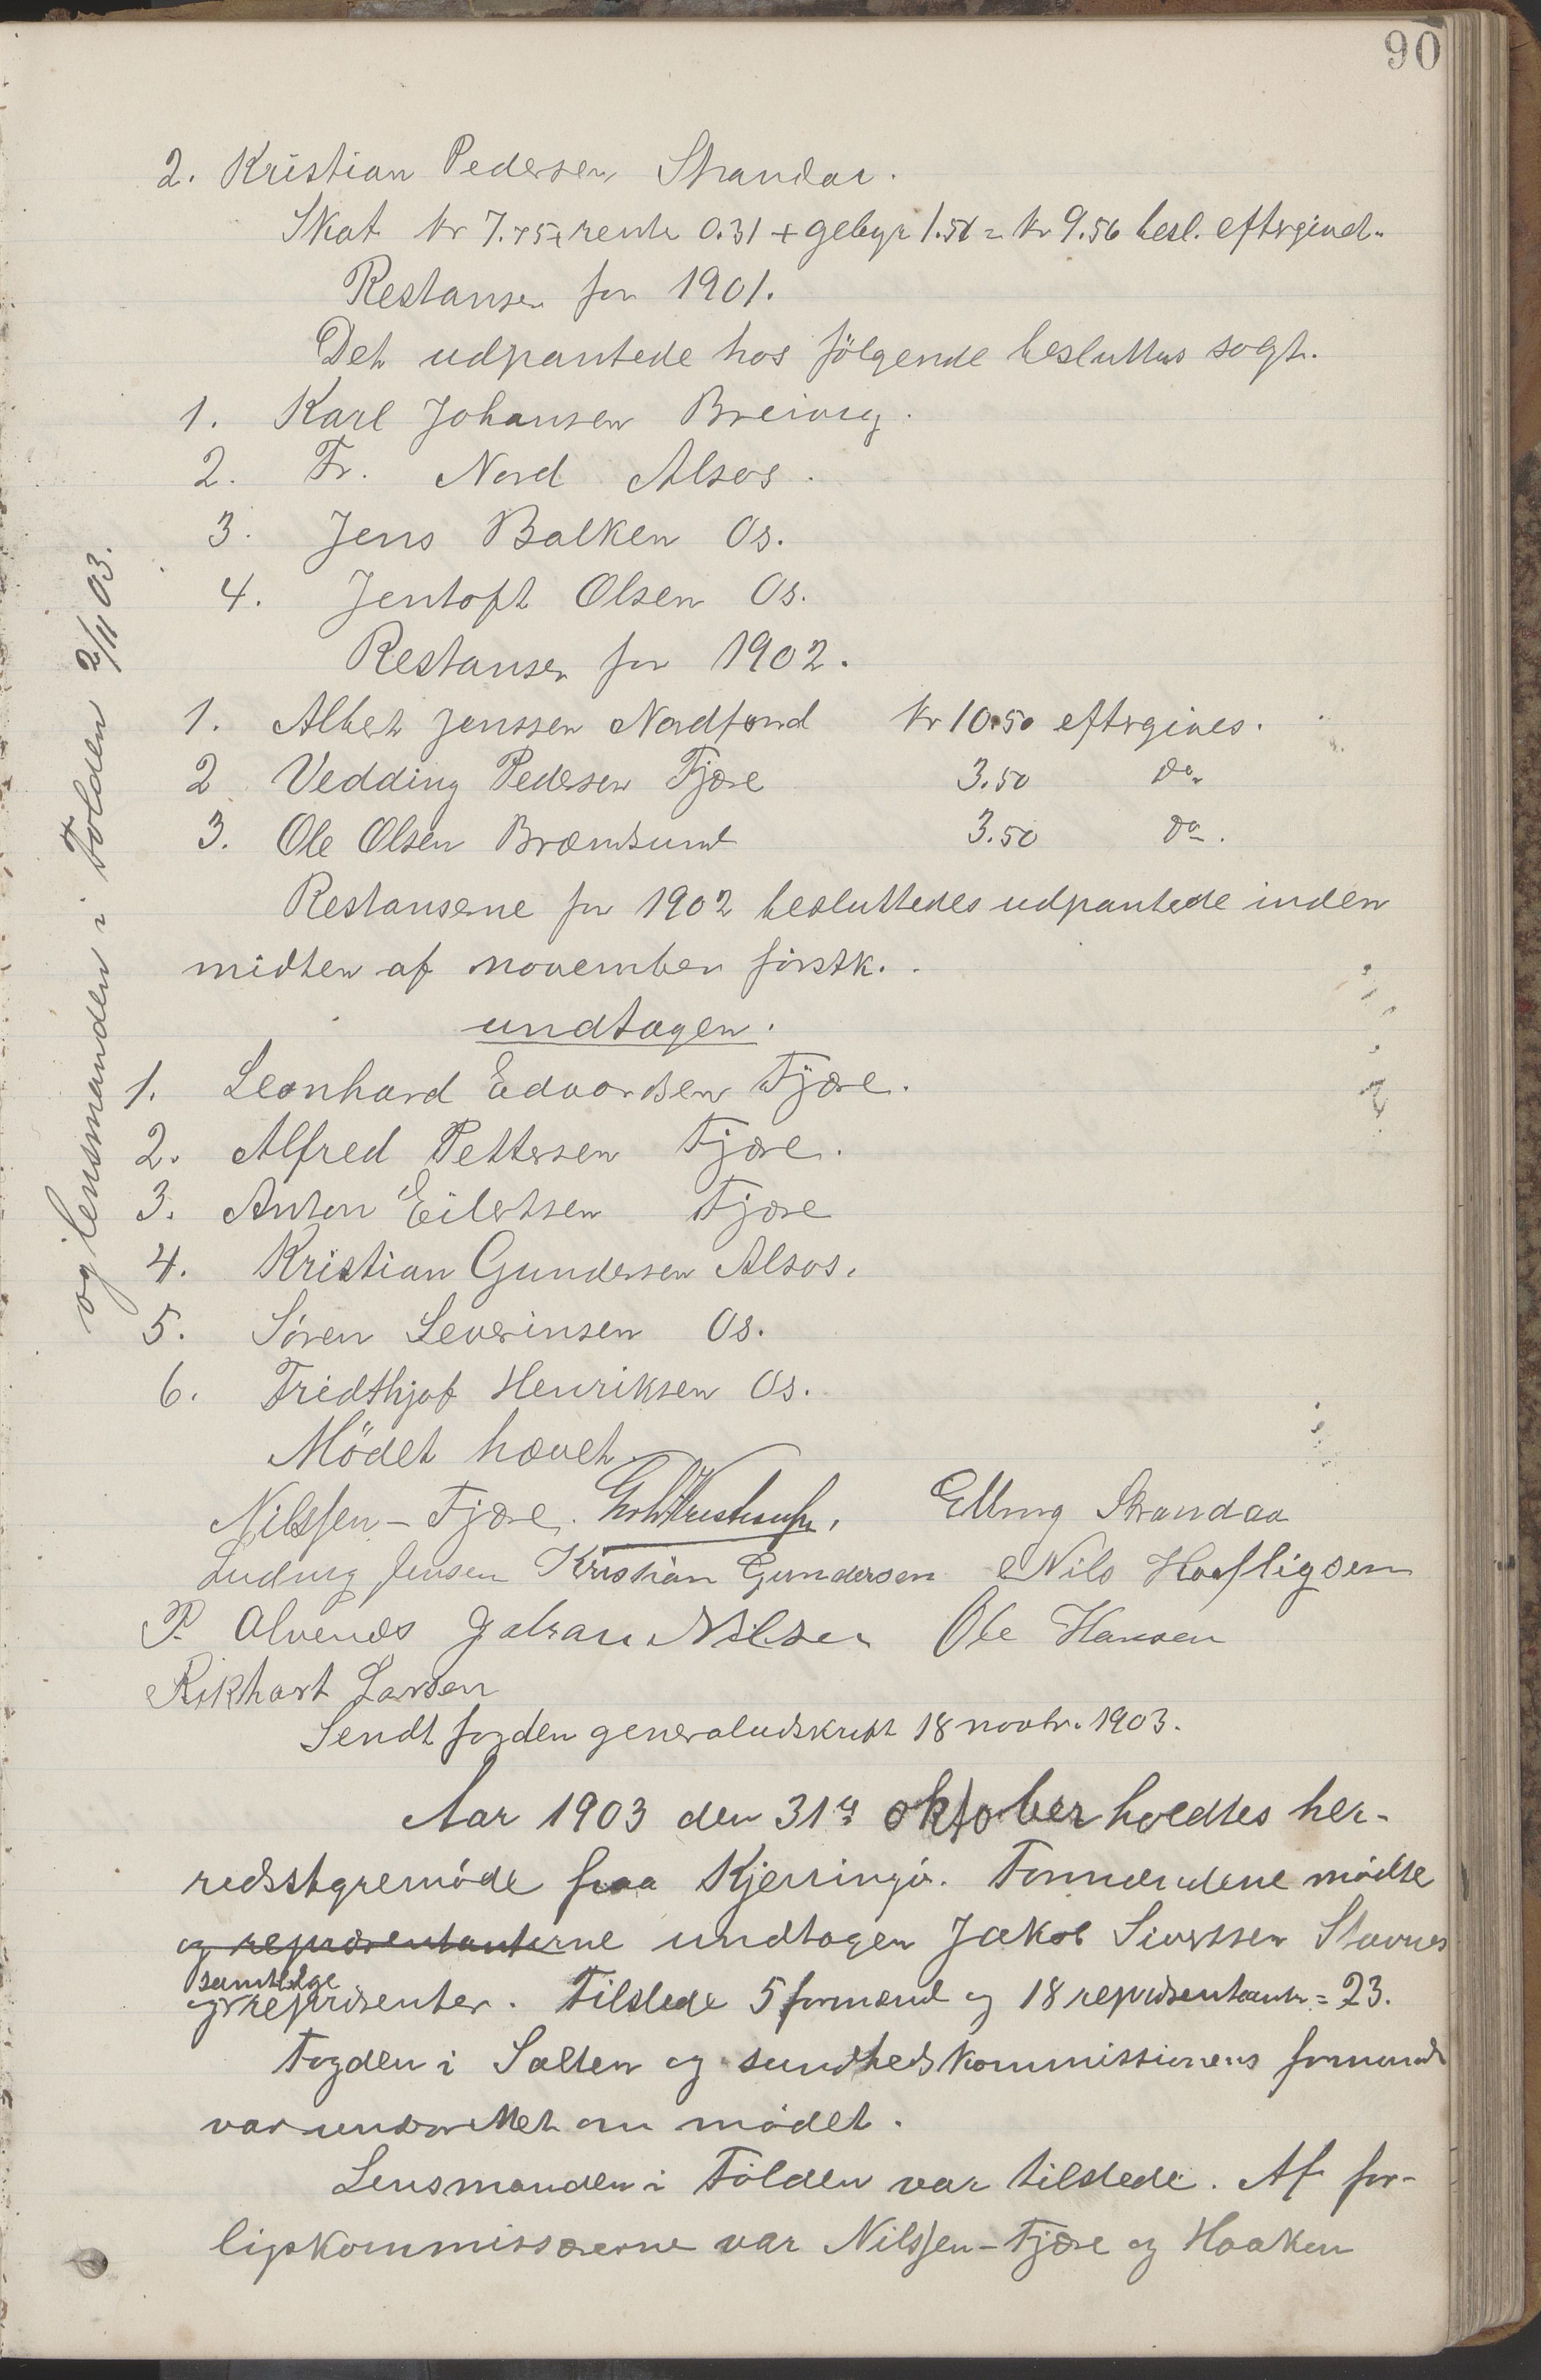 90
2. Kristian Pedersen Strandaa.
Skat kr 7.75 + rente 0.31 + gebyr 1.50 = kr 9.56 besl. eftergivet.
Restanser for 1901.
Det udpantede hos følgende besluttes solgt.
1. Karl Johansen Breivig.
2. Fr. Nord Alsos.
3. Jens Balken Os.
4. Jentoft Olsen Os.
Restanser for 1902.
1. Albert Jenssen Nordfjord kr 10.50 eftergives.
2 Vedding Pedersen Fjære 3.50 do.
3. Ole Olsen Bræmsund 3.50 do.
Restanserne for 1902 besluttedes udpantede inden
midten af november førstk.
undtagen.
1. Leonhard Edvardsen Fjære.
2. Alfred Pettersen Fjære.
3. Anton Eilertsen Fjære
4. Kristian Gundersen Alsos.
5. Søren Severinsen Os.
6. Fridthjof Henriksen Os.
Mödet hævet.
Nilssen-Fjære. Elling Strandaa
Ludvig Jensen Kristian Gundersen Nils Hoafligsen
P. Alvenæs Johan Nilsen Ole Hansen
Rikhart Larsen
Sendt fogden generaludskrift 18 novbr. 1903.
Aar 1903 den 31te oktober holdtes her-
redsstyremøde paa Kjerringø. Formændene mødte
og repræsentanterne undtagen Jakob Sivertsen Stavnes
samtlige
og repræsenter. Tilstede 5 formænd og 18 repræsentanter = 23.
Fogden i Salten og sundhedskommissionens formand
var underrettet om mødet.
Lensmanden i Folden var tilstede. Af for-
ligskommissærerne var Nilssen-Fjære og Haaken
og lensmanden i Folden 2/11 03.